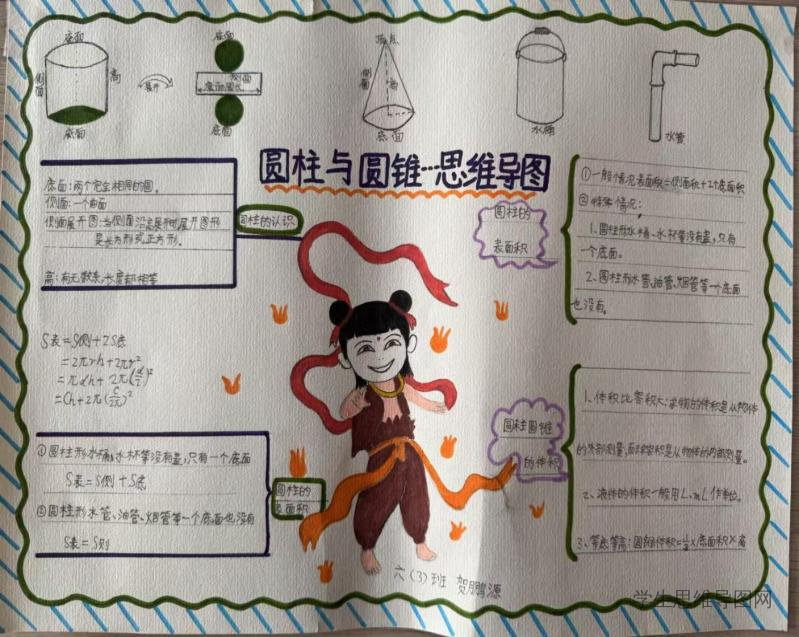 底面
侧面
高
底面
展开
底面
侧面
底面周长
底面
顶点
侧面
高
底面
水桶
水管
圆柱与圆锥…思维导图
底面:两个完全相同的圆。
侧面:一个曲面
侧面展开图:当侧面沿高展开时展开图形
是长方形或正方形。
高:有无数条,长度都相等
圆柱的认识
S表=S侧+2S底
=2πrh+2πr²
=πdh+2π(d/2)²
=Ch+2π(C/2π)²
①圆柱形水桶,水杯等没有盖,只有一个底面
S表=S侧+S底
②圆柱形水管、油管、烟管等一个底面也没有
S表=S侧
圆柱的
表面积
圆柱的
表面积
①一般情况表面积=侧面积+2个底面积
②特殊情况:
1、圆柱形水桶、水杯等没有盖,只有
一个底面。
2、圆柱形水管、油管、烟管等一个底面
也没有。
圆柱圆锥
的体积
1、体积比容积大:实物的体积是从物体
的外部测量,而容积是从物体的内部测量。
2、液体的体积一般用L、mL作单位。
3、等底等高:圆锥体积=1/3×底面积×高
六(3)班 贺鹏源
学生思维导图网